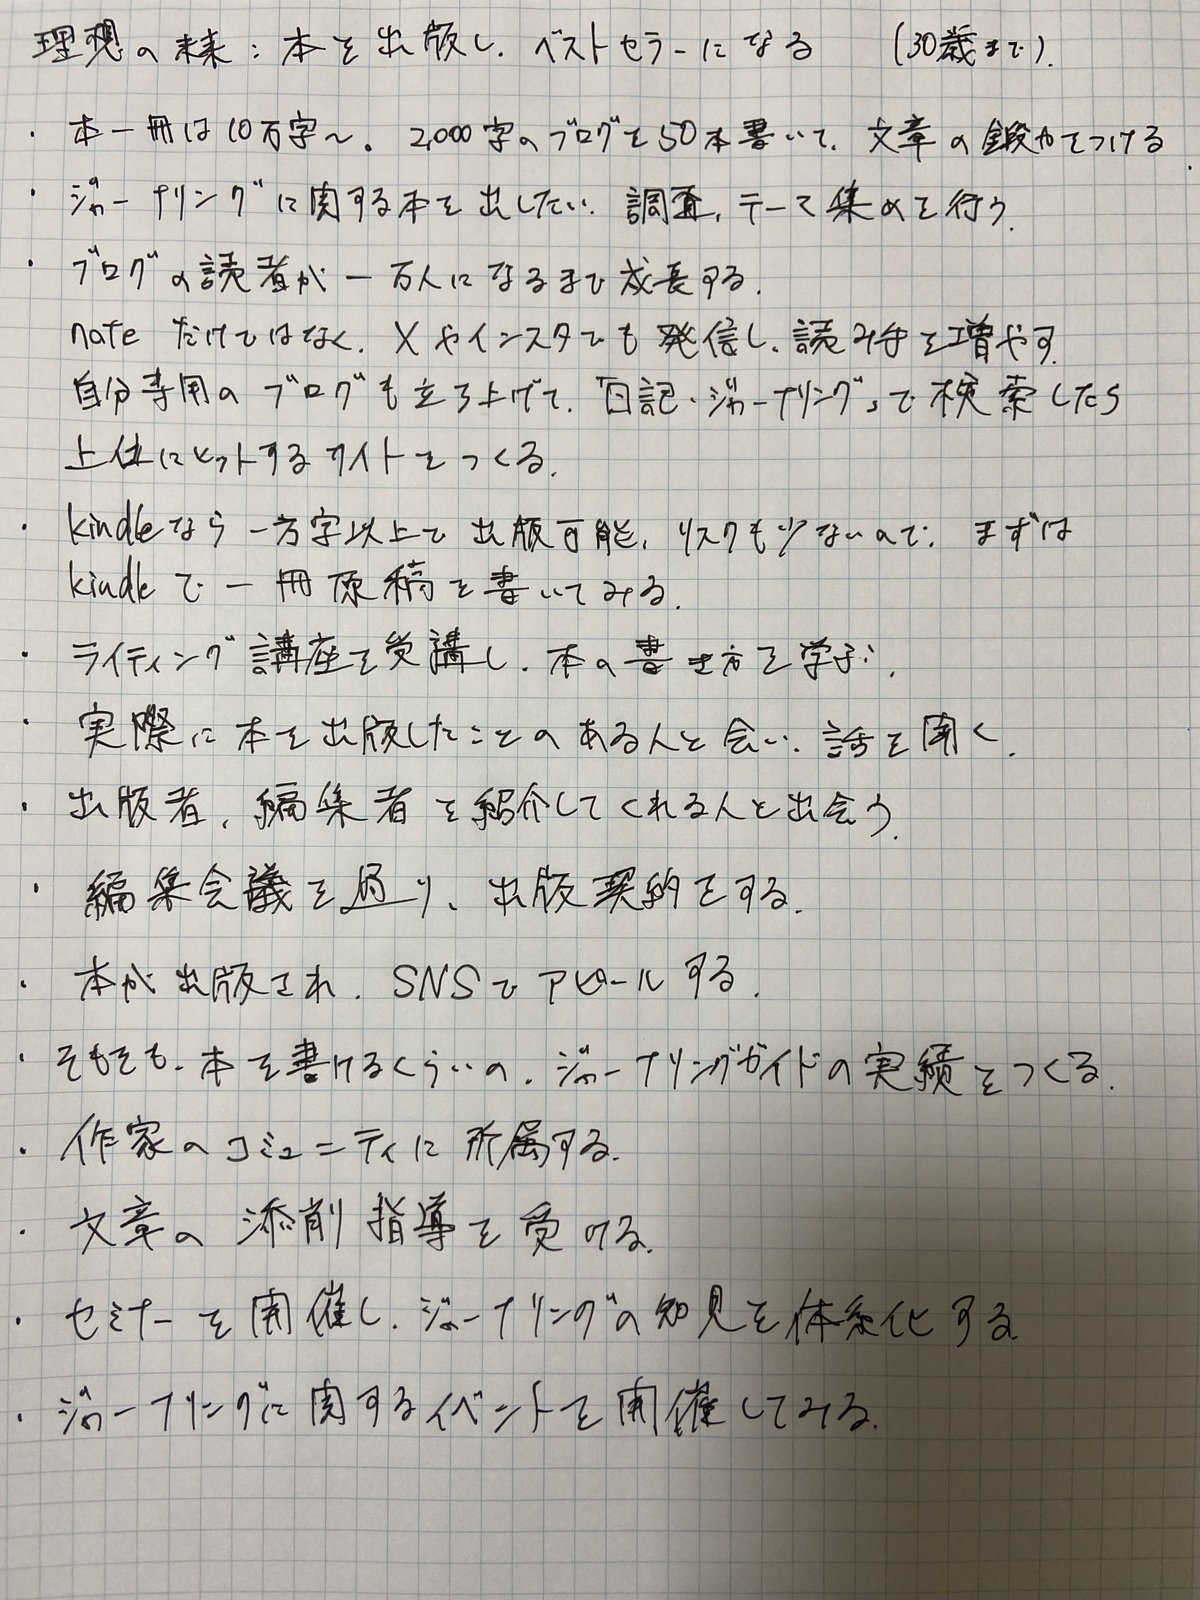 理想の未来：本を出版し、ベストセラーになる （30歳まで）.
・本一冊は10万字〜。2,000字のブログを50本書いて、文章の鍛力をつける
・ジャーナリングに関する本を出したい。調査、テーマ集めを行う。
・ブログの読者が一万人になるまで成長する。
noteだけではなく、Xやインスタでも発信し、読み手を増やす。
自分専用のブログも立ち上げて、「日記・ジャーナリング」で検索したら
上位にヒットするサイトをつくる。
・kindleなら一万字以上で出版可能。リスクも少ないので、まずは
kindleで一冊原稿を書いてみる。
・ライティング講座を受講し、本の書き方を学ぶ。
・実際に本を出版したことのある人と会い、話を聞く。
・出版者、編集者を紹介してくれる人と出会う。
・編集会議を通り、出版契約をする。
・本が出版され、SNSでアピールする。
・そもそも、本を書けるくらいの、ジャーナリングガイドの実績をつくる。
・作家のコミュニティに所属する。
・文章の添削指導を受ける。
・セミナーを開催し、ジャーナリングの知見を体系化する。
・ジャーナリングに関するイベントを開催してみる。